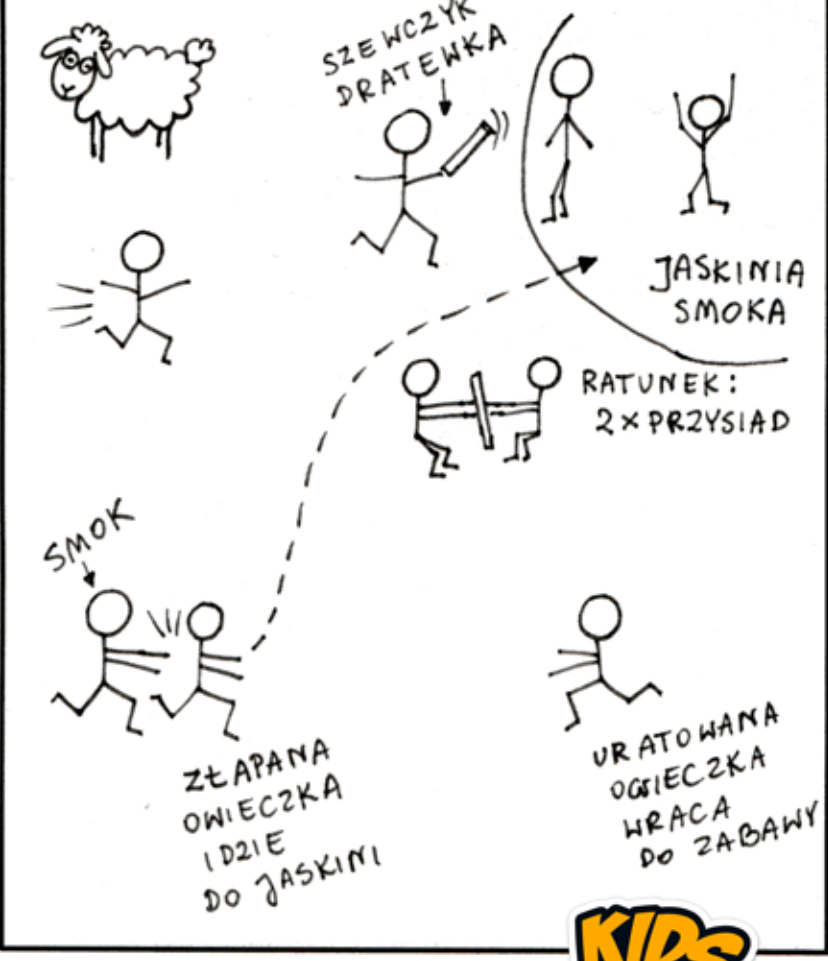 SZEWCZYK
DRATEWKA
JASKINIA
SMOKA
RATUNEK:
2xPRZYSIAD
SMOK
ZŁAPANA
OWIECZKA
IDZIE
DO JASKINI
URATOWANA
OWIECZKA
WRACA
DO ZABAWY
KIDS